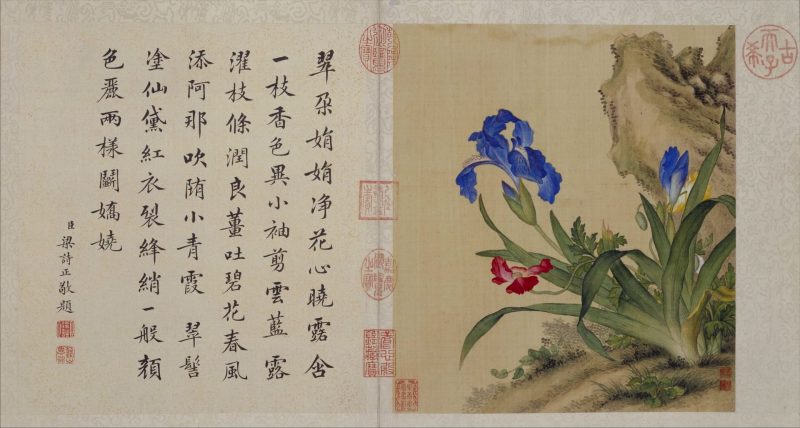 翠朵娟娟净花心曉露含
一枝香色異小袖剪雲藍露
濯枝條潤良薑吐碧花春風
添阿那吹堕小青霞 翠髻
塗仙黛紅衣裂絳綃一般顏
色麗兩樣鬭嬌嬈
臣梁詩正敬題
古希天子